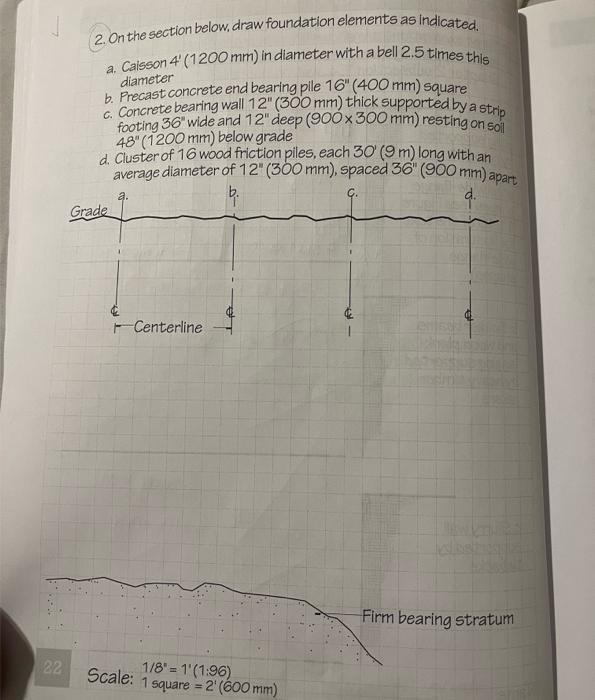 2. On the section below, draw foundation elements as indicated.
a. Caisson 4' (1200 mm) in diameter with a bell 2.5 times this
diameter
b. Precast concrete end bearing pile 16" (400 mm) square
c. Concrete bearing wall 12" (300 mm) thick supported by a strip
footing 36" wide and 12" deep (900 x 300 mm) resting on soil
48" (1200 mm) below grade
d. Cluster of 16 wood friction piles, each 30' (9 m) long with an
average diameter of 12" (300 mm), spaced 36" (900 mm) apart
a. b. c. d.
Grade
℄ ℄ ℄ ℄
Centerline
Firm bearing stratum
22
Scale: 1/8" = 1' (1:96)
1 square = 2' (600 mm)